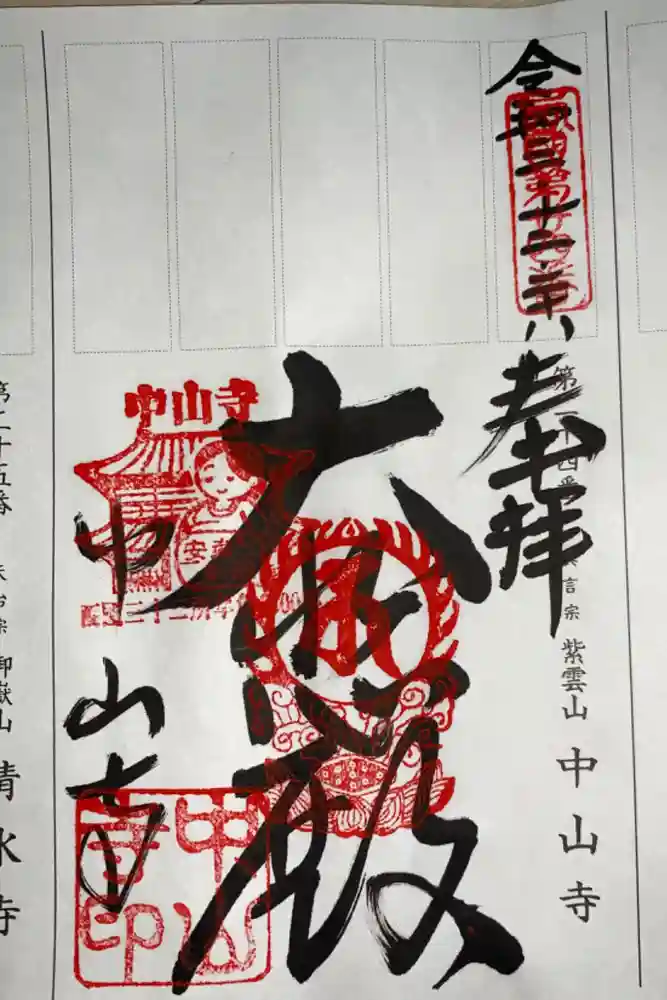 令和三・十二・廿八
奉拝
西国第廿四番
第二十四番 真言宗 紫雲山 中山寺
大悲殿
中山寺
安産
中山寺
中山寺印
第二十五番 天台宗 御嶽山 清水寺